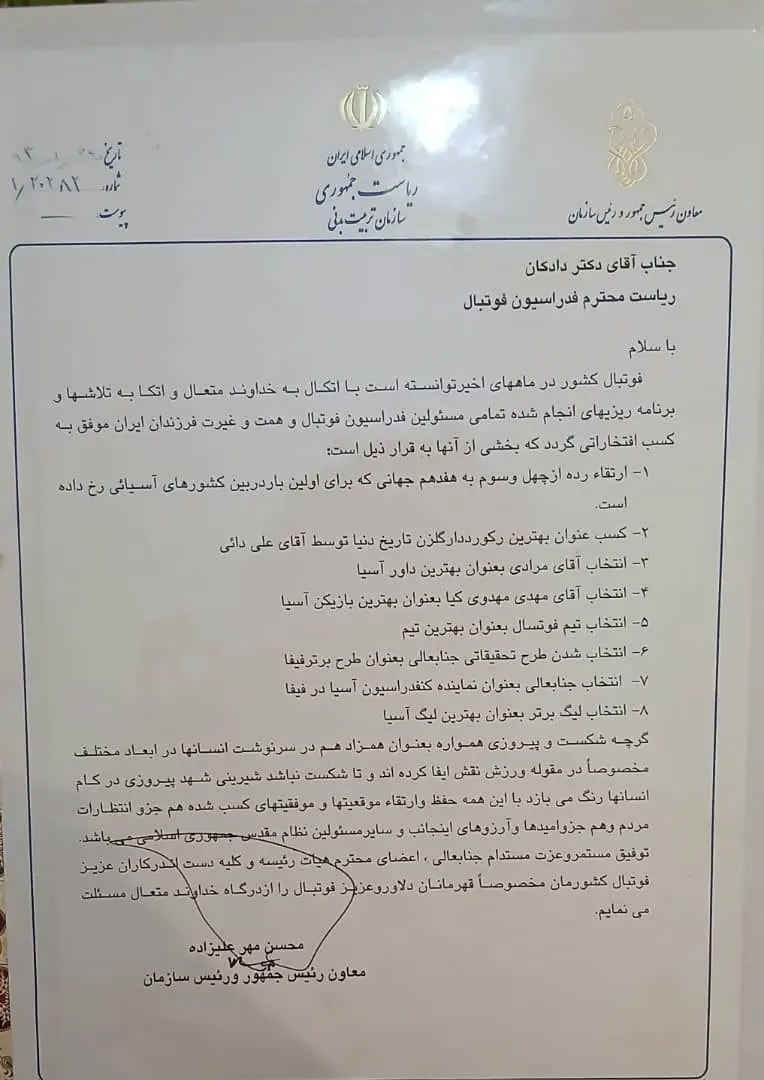 جمهوری اسلامی ایران
ریاست جمهوری
سازمان تربیت بدنی
معاون رئیس جمهور و رئیس سازمان
تاریخ:
شماره: ۱/۲۰۲۸۲
پیوست:
جناب آقای دکتر دادکان
ریاست محترم فدراسیون فوتبال
با سلام
فوتبال کشور در ماههای اخیرتوانسته است با اتکال به خداوند متعال و اتکا به تلاشها و
برنامه ریزیهای انجام شده تمامی مسئولین فدراسیون فوتبال و همت و غیرت فرزندان ایران موفق به
کسب افتخاراتی گردد که بخشی از آنها به قرار ذیل است:
۱- ارتقاء رده ازچهل وسوم به هفدهم جهانی که برای اولین باردربین کشورهای آسیائی رخ داده
است.
۲- کسب عنوان بهترین رکورددارگلزن تاریخ دنیا توسط آقای علی دائی
۳- انتخاب آقای مرادی بعنوان بهترین داور آسیا
۴- انتخاب آقای مهدی مهدوی کیا بعنوان بهترین بازیکن آسیا
۵- انتخاب تیم فوتسال بعنوان بهترین تیم
۶- انتخاب شدن طرح تحقیقاتی جنابعالی بعنوان طرح برترفیفا
۷- انتخاب جنابعالی بعنوان نماینده کنفدراسیون آسیا در فیفا
۸- انتخاب لیگ برتر بعنوان بهترین لیگ آسیا
گرچه شکست و پیروزی همواره بعنوان همزاد هم در سرنوشت انسانها در ابعاد مختلف
مخصوصاً در مقوله ورزش نقش ایفا کرده اند و تا شکست نباشد شیرینی شهد پیروزی در کام
انسانها رنگ می بازد با این همه حفظ وارتقاء موقعیتها و موفقیتهای کسب شده هم جزو انتظارات
مردم وهم جزوامیدها وآرزوهای اینجانب و سایرمسئولین نظام مقدس جمهوری اسلامی می باشد.
توفیق مستمروعزت مستدام جنابعالی ، اعضای محترم هیات رئیسه و کلیه دست اندرکاران عزیز
فوتبال کشورمان مخصوصاً قهرمانان دلاوروعزیز فوتبال را ازدرگاه خداوند متعال مسئلت
می نمایم.
محسن مهر علیزاده
معاون رئیس جمهور ورئیس سازمان